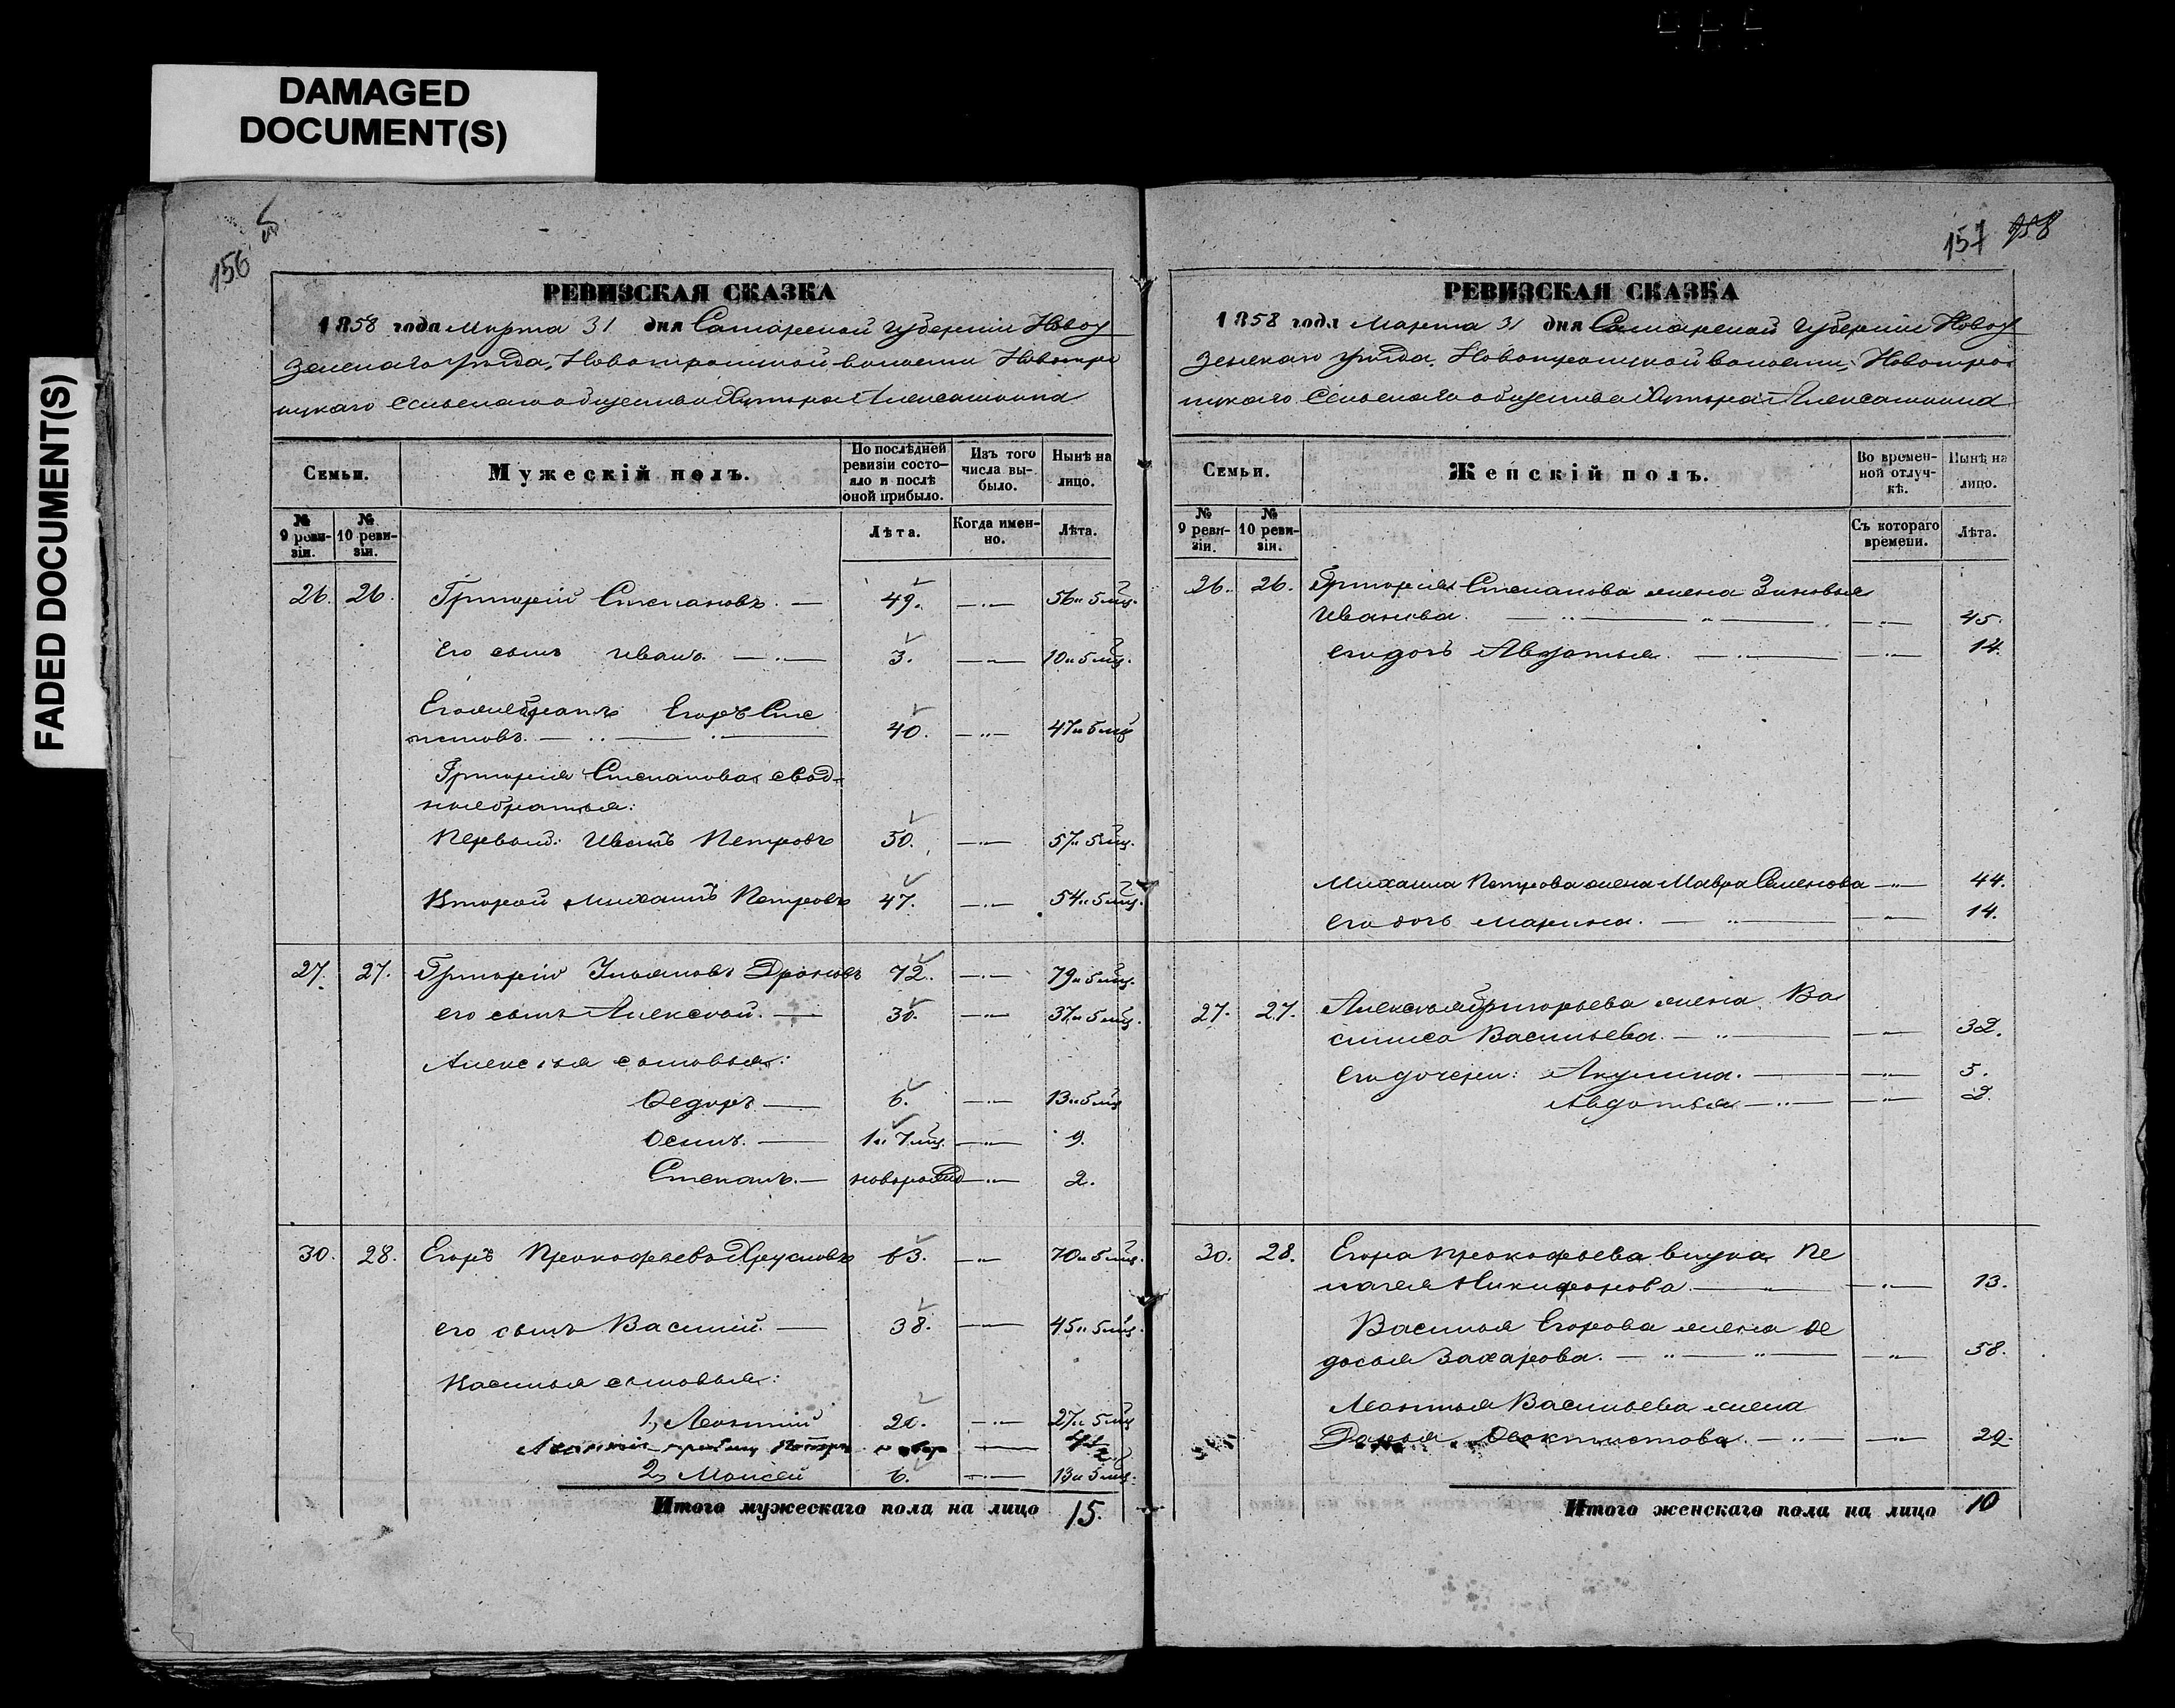 DAMAGED
DOCUMENT(S)
FADED DOCUMENT(S)
156
РЕВИЗСКАЯ СКАЗКА
1858 года Марта 31 дня Самарской Губернии Новоу
зенскаго уѣзда, Новотроицкой волости Новотро
ицкаго Сельскаго общества Хутора Алексашкина
Семьи.
Мужескій полъ.
По послѣдней ревизіи состо-яло и послѣ оной прибыло.
Изъ того числа вы-было.
Нынѣ на лицо.
№ 9 реви-зіи.
№ 10 реви-зіи.
Лѣта.
Когда имен-но.
Лѣта.
26. 26. Григорій Степановъ. 49. 56 и 5 мц.
Его сынъ Иванъ 3. 10 и 5 мц.
Егоръ Сте
пановъ. 40. 47 и 5 мц
Григорія Степанова свод-
ные братья:
Первый: Иванъ Петровъ 50. 57 и 5 мц.
Второй Михаилъ Петровъ 47. 54 и 5 мц.
27. 27. Григорій Ульяновъ Дроновъ 72. 79 и 5 мц.
его сынъ Алексѣй. 30. 37 и 5 мц.
Алексѣя сыновья:
Ѳедоръ 6. 13 и 5 мц
Осипъ. 1 и 7 мц. 9.
Степанъ. новорожд 2.
30. 28. Егоръ Прокофьевъ 63. 70 и 5 мц.
его сынъ Василій. 38. 45 и 5 мц.
Василья сыновья:
1, Леонтій 20. 27 и 5 мц
2, Моисей 6. 13 и 5 мц.
Итого мужескаго пола на лицо 15.
157 158
РЕВИЗСКАЯ СКАЗКА
1858 года Марта 31 дня Самарской Губернии Новоу
зенскаго уѣзда, Новотроицкой волости, Новотро
ицкаго Сельскаго общества Хутора Алексашкина
Семьи.
Женскій полъ.
Во времен-ной отлуч-кѣ.
Нынѣ на лицо.
№ 9 реви-зіи.
№ 10 реви-зіи.
Съ котораго времени.
Лѣта.
26. 26. Григорія Степанова жена Зиновья
Иванова. 45.
его дочь Авдотья. 14.
Михаила Петрова жена Мавра Семенова 44.
его дочь Марина. 14.
27. 27. Алексѣя Григорьева жена Ва
силиса Васильева. 32.
его дочери: Акулина. 5.
Авдотья 2.
30. 28. Егора Прокофьева внука Пе
лагея Никифорова 13.
Василья Егорова жена Ѳе
досья Захарова. 38.
Леонтья Васильева жена
Дарья Ѳеоктистова. 22.
Итого женскаго пола на лицо 10